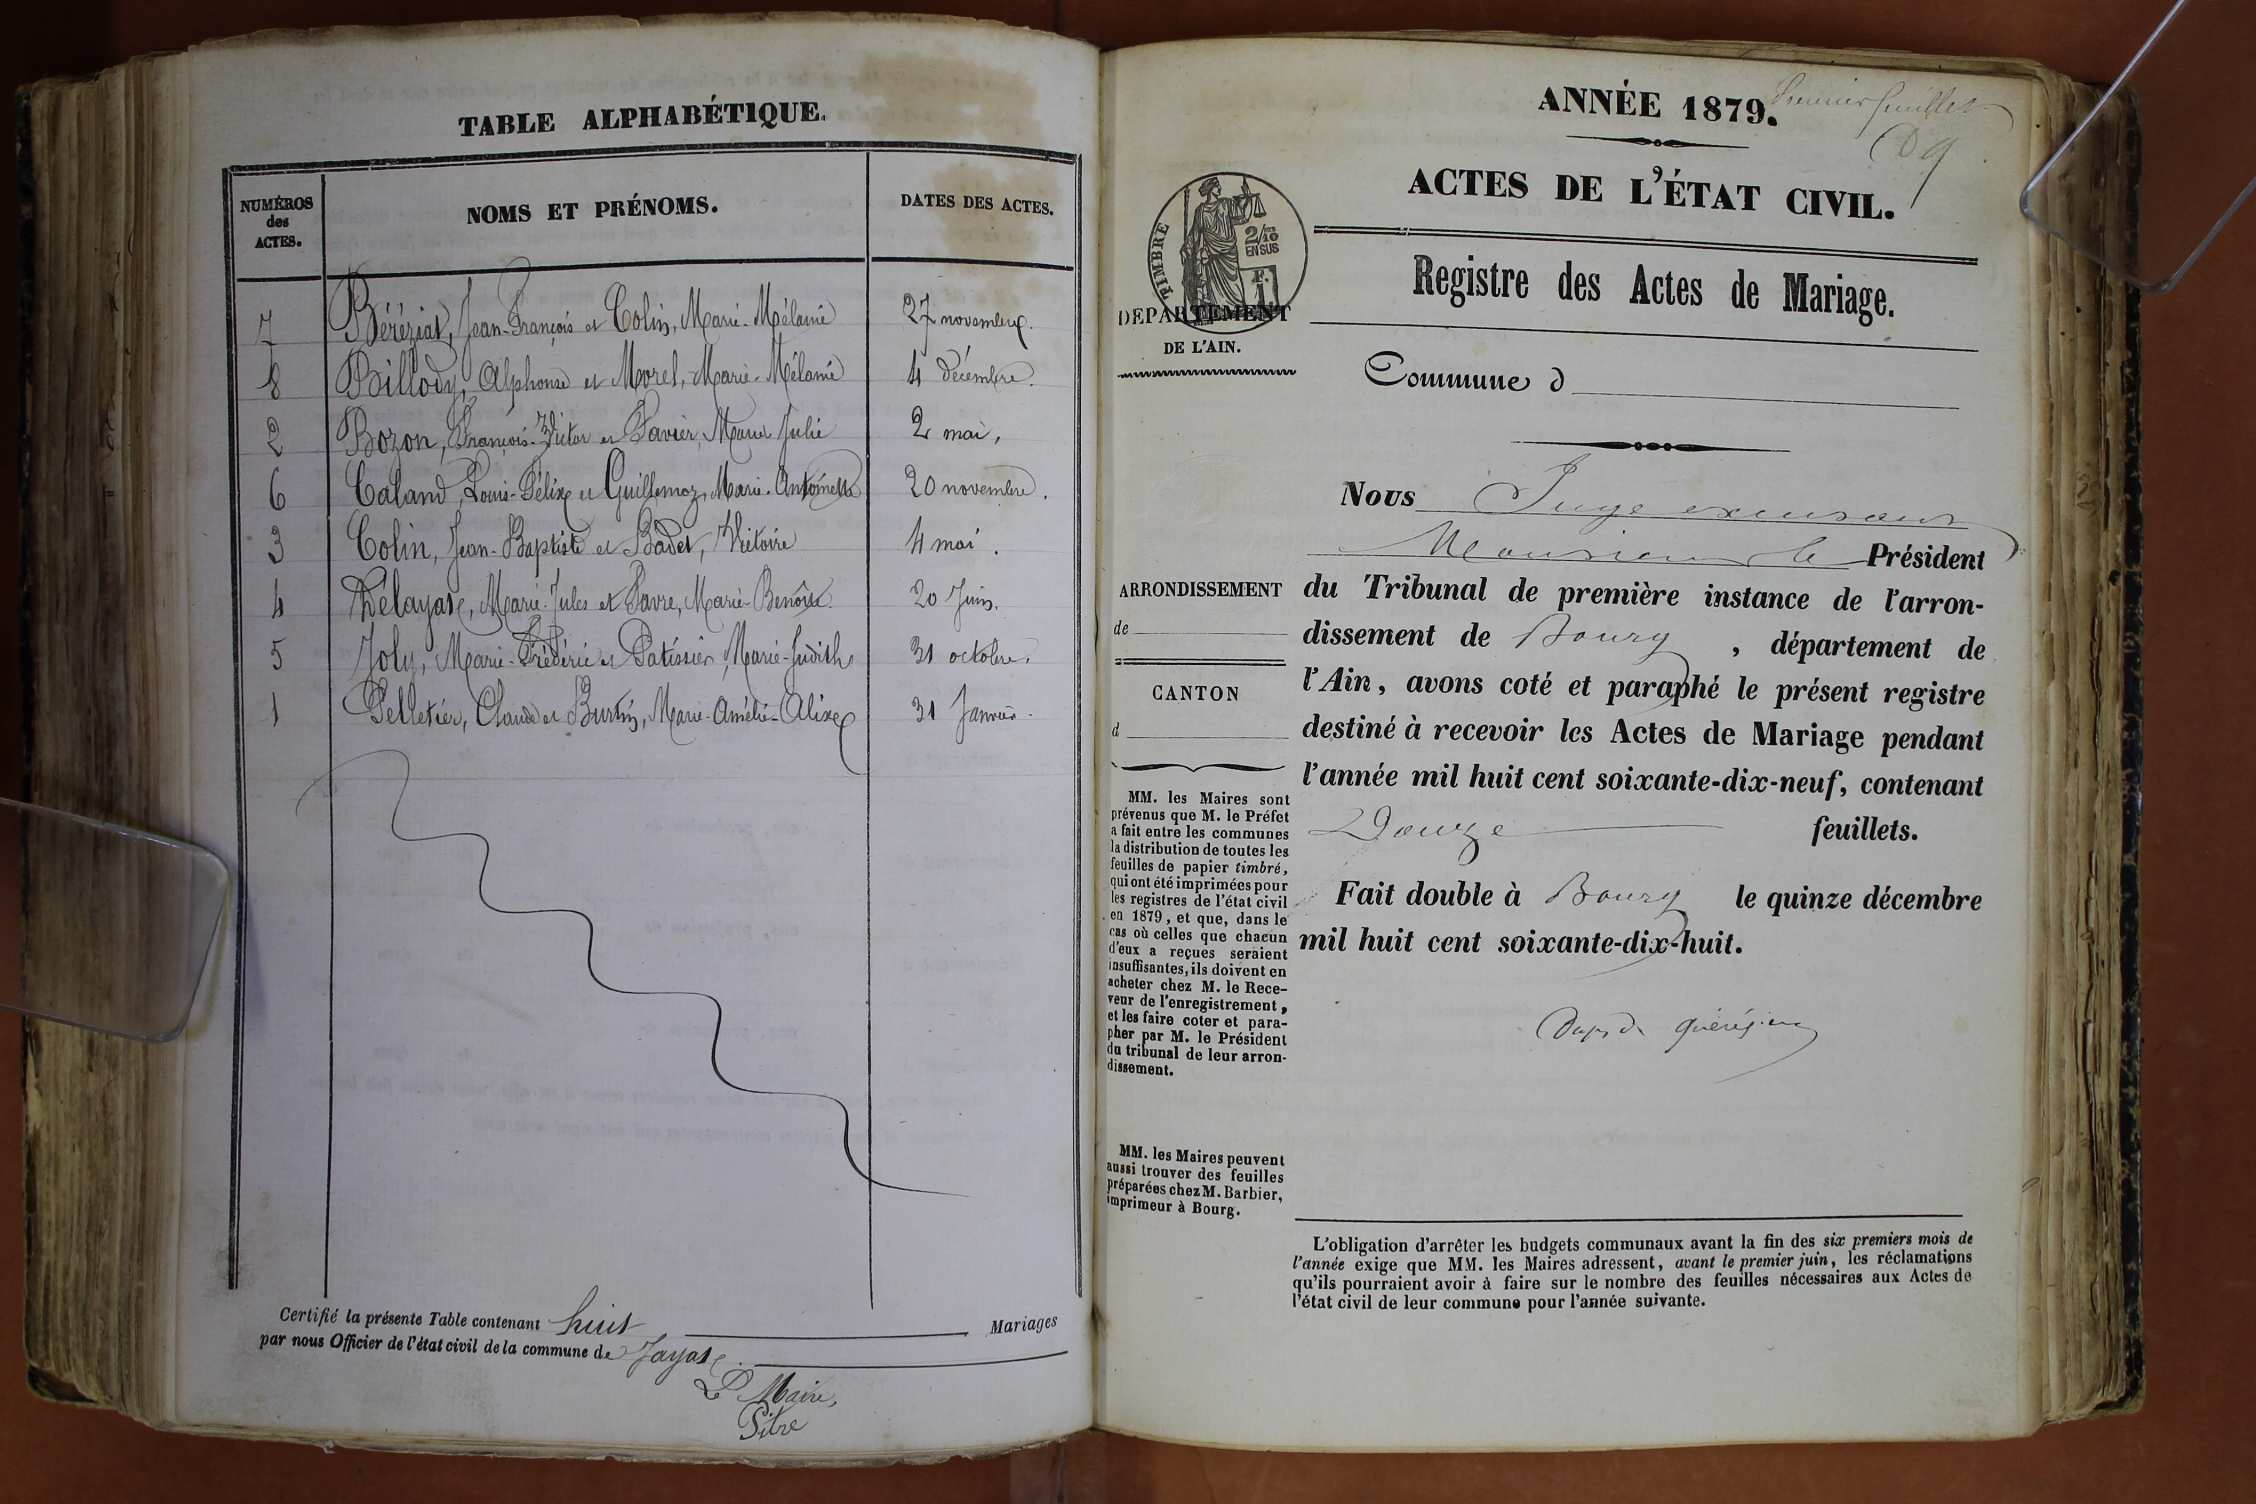 TABLE ALPHABÉTIQUE.
NUMÉROS des ACTES.
NOMS ET PRÉNOMS.
DATES DES ACTES.
7 Béréziat, Jean-François et Colin, Marie-Mélanie 27 novembre.
8 Billody, Alphonse et Morel, Marie-Mélanie 4 décembre.
2 Bozon, François-Victor et Favier, Marie Julie 2 mai.
6 Caland, Louis-Félix et Guillemoz, Marie-Antoinette 20 novembre.
3 Colin, Jean-Baptiste et Badet, Victoire 4 mai.
4 Délayat, Marie-Jules et Favre, Marie-Benoite 20 Juin.
5 Joly, Marie-Frédéric et Patissier, Marie-Judith 31 octobre.
1 Pelletier, Claude et Burtin, Marie-Amélie-Alix 31 Janvier.
Certifié la présente Table contenant huit Mariages
par nous Officier de l'état civil de la commune de Jayat.
Le Maire,
Pitre
ANNÉE 1879.
Premier feuillet
ACTES DE L'ÉTAT CIVIL.
TIMBRE
2/10
EN SUS
F. 1.
Registre des Actes de Mariage.
DEPARTEMENT
DE L'AIN.
Commune d
Nous Juge exerçant
Monsieur le Président
ARRONDISSEMENT
de
CANTON
d
du Tribunal de première instance de l'arron-
dissement de Bourg, département de
l'Ain, avons coté et paraphé le présent registre
destiné à recevoir les Actes de Mariage pendant
l'année mil huit cent soixante-dix-neuf, contenant
Douze feuillets.
Fait double à Bourg le quinze décembre
mil huit cent soixante-dix-huit.
MM. les Maires sont
prévenus que M. le Préfet
a fait entre les communes
la distribution de toutes les
feuilles de papier timbré,
qui ont été imprimées pour
les registres de l'état civil
en 1879, et que, dans le
cas où celles que chacun
d'eux a reçues seraient
insuffisantes, ils doivent en
acheter chez M. le Rece-
veur de l'enregistrement,
et les faire coter et para-
pher par M. le Président
du tribunal de leur arron-
dissement.
MM. les Maires peuvent
aussi trouver des feuilles
préparées chez M. Barbier,
imprimeur à Bourg.
L'obligation d'arrêter les budgets communaux avant la fin des six premiers mois de
l'année exige que MM. les Maires adressent, avant le premier juin, les réclamations
qu'ils pourraient avoir à faire sur le nombre des feuilles nécessaires aux Actes de
l'état civil de leur commune pour l'année suivante.